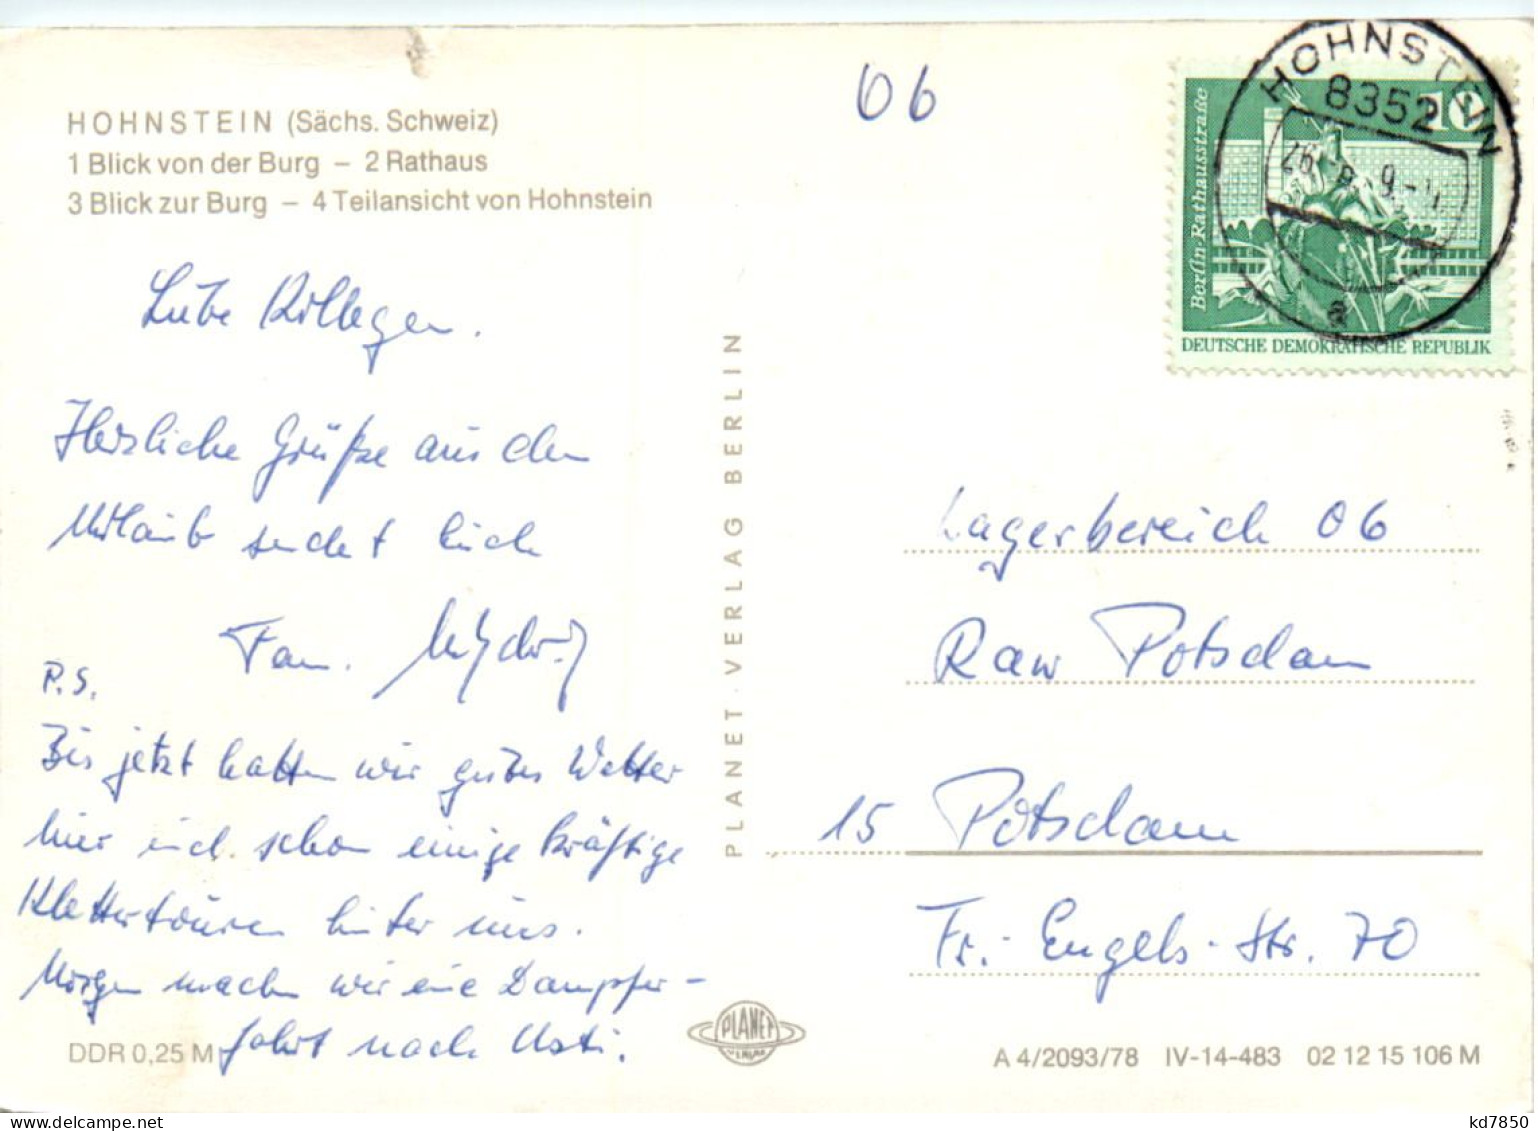 HOHNSTEIN (Sächs. Schweiz)
1 Blick von der Burg – 2 Rathaus
3 Blick zur Burg – 4 Teilansicht von Hohnstein
06
Liebe Kollegen.
Herzliche Grüße aus dem
Urlaub sendet Euch
Fam.
P.S.
Bis jetzt hatten wir gutes Wetter
hier und schon einige kräftige
Klettertouren hinter uns.
Morgen machen wir eine Dampfer-
fahrt nach Usti.
DDR 0,25 M
PLANET-VERLAG BERLIN
PLANET
VERLAG
HOHNSTEIN
8352
a
10
Berlin-Rathausstraße
DEUTSCHE DEMOKRATISCHE REPUBLIK
Lagerbereich 06
Raw Potsdam
15 Potsdam
Fr.-Engels-Str. 70
A 4/2093/78 IV-14-483 02 12 15 106 M
kd7850